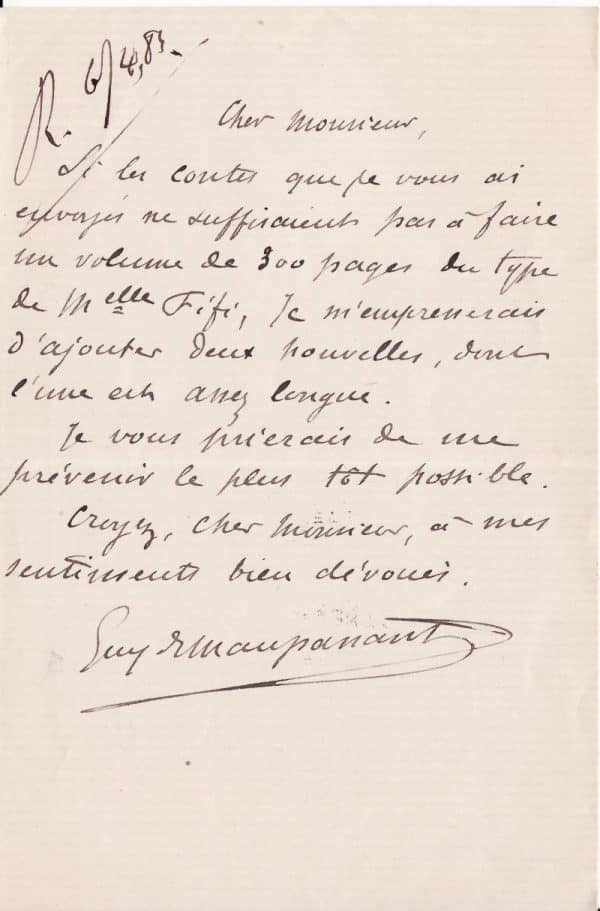 R. 6/4, 83.
Cher Monsieur,
Si les contes que je vous ai
envoyés ne suffisaient pas à faire
un volume de 300 pages du type
de Melle Fifi, Je m'empresserais
d'ajouter deux nouvelles, dont
l'une est assez longue.
Je vous prierais de me
prévenir le plus tôt possible.
Croyez, cher Monsieur, à mes
sentiments bien dévoués.
Guy de Maupassant